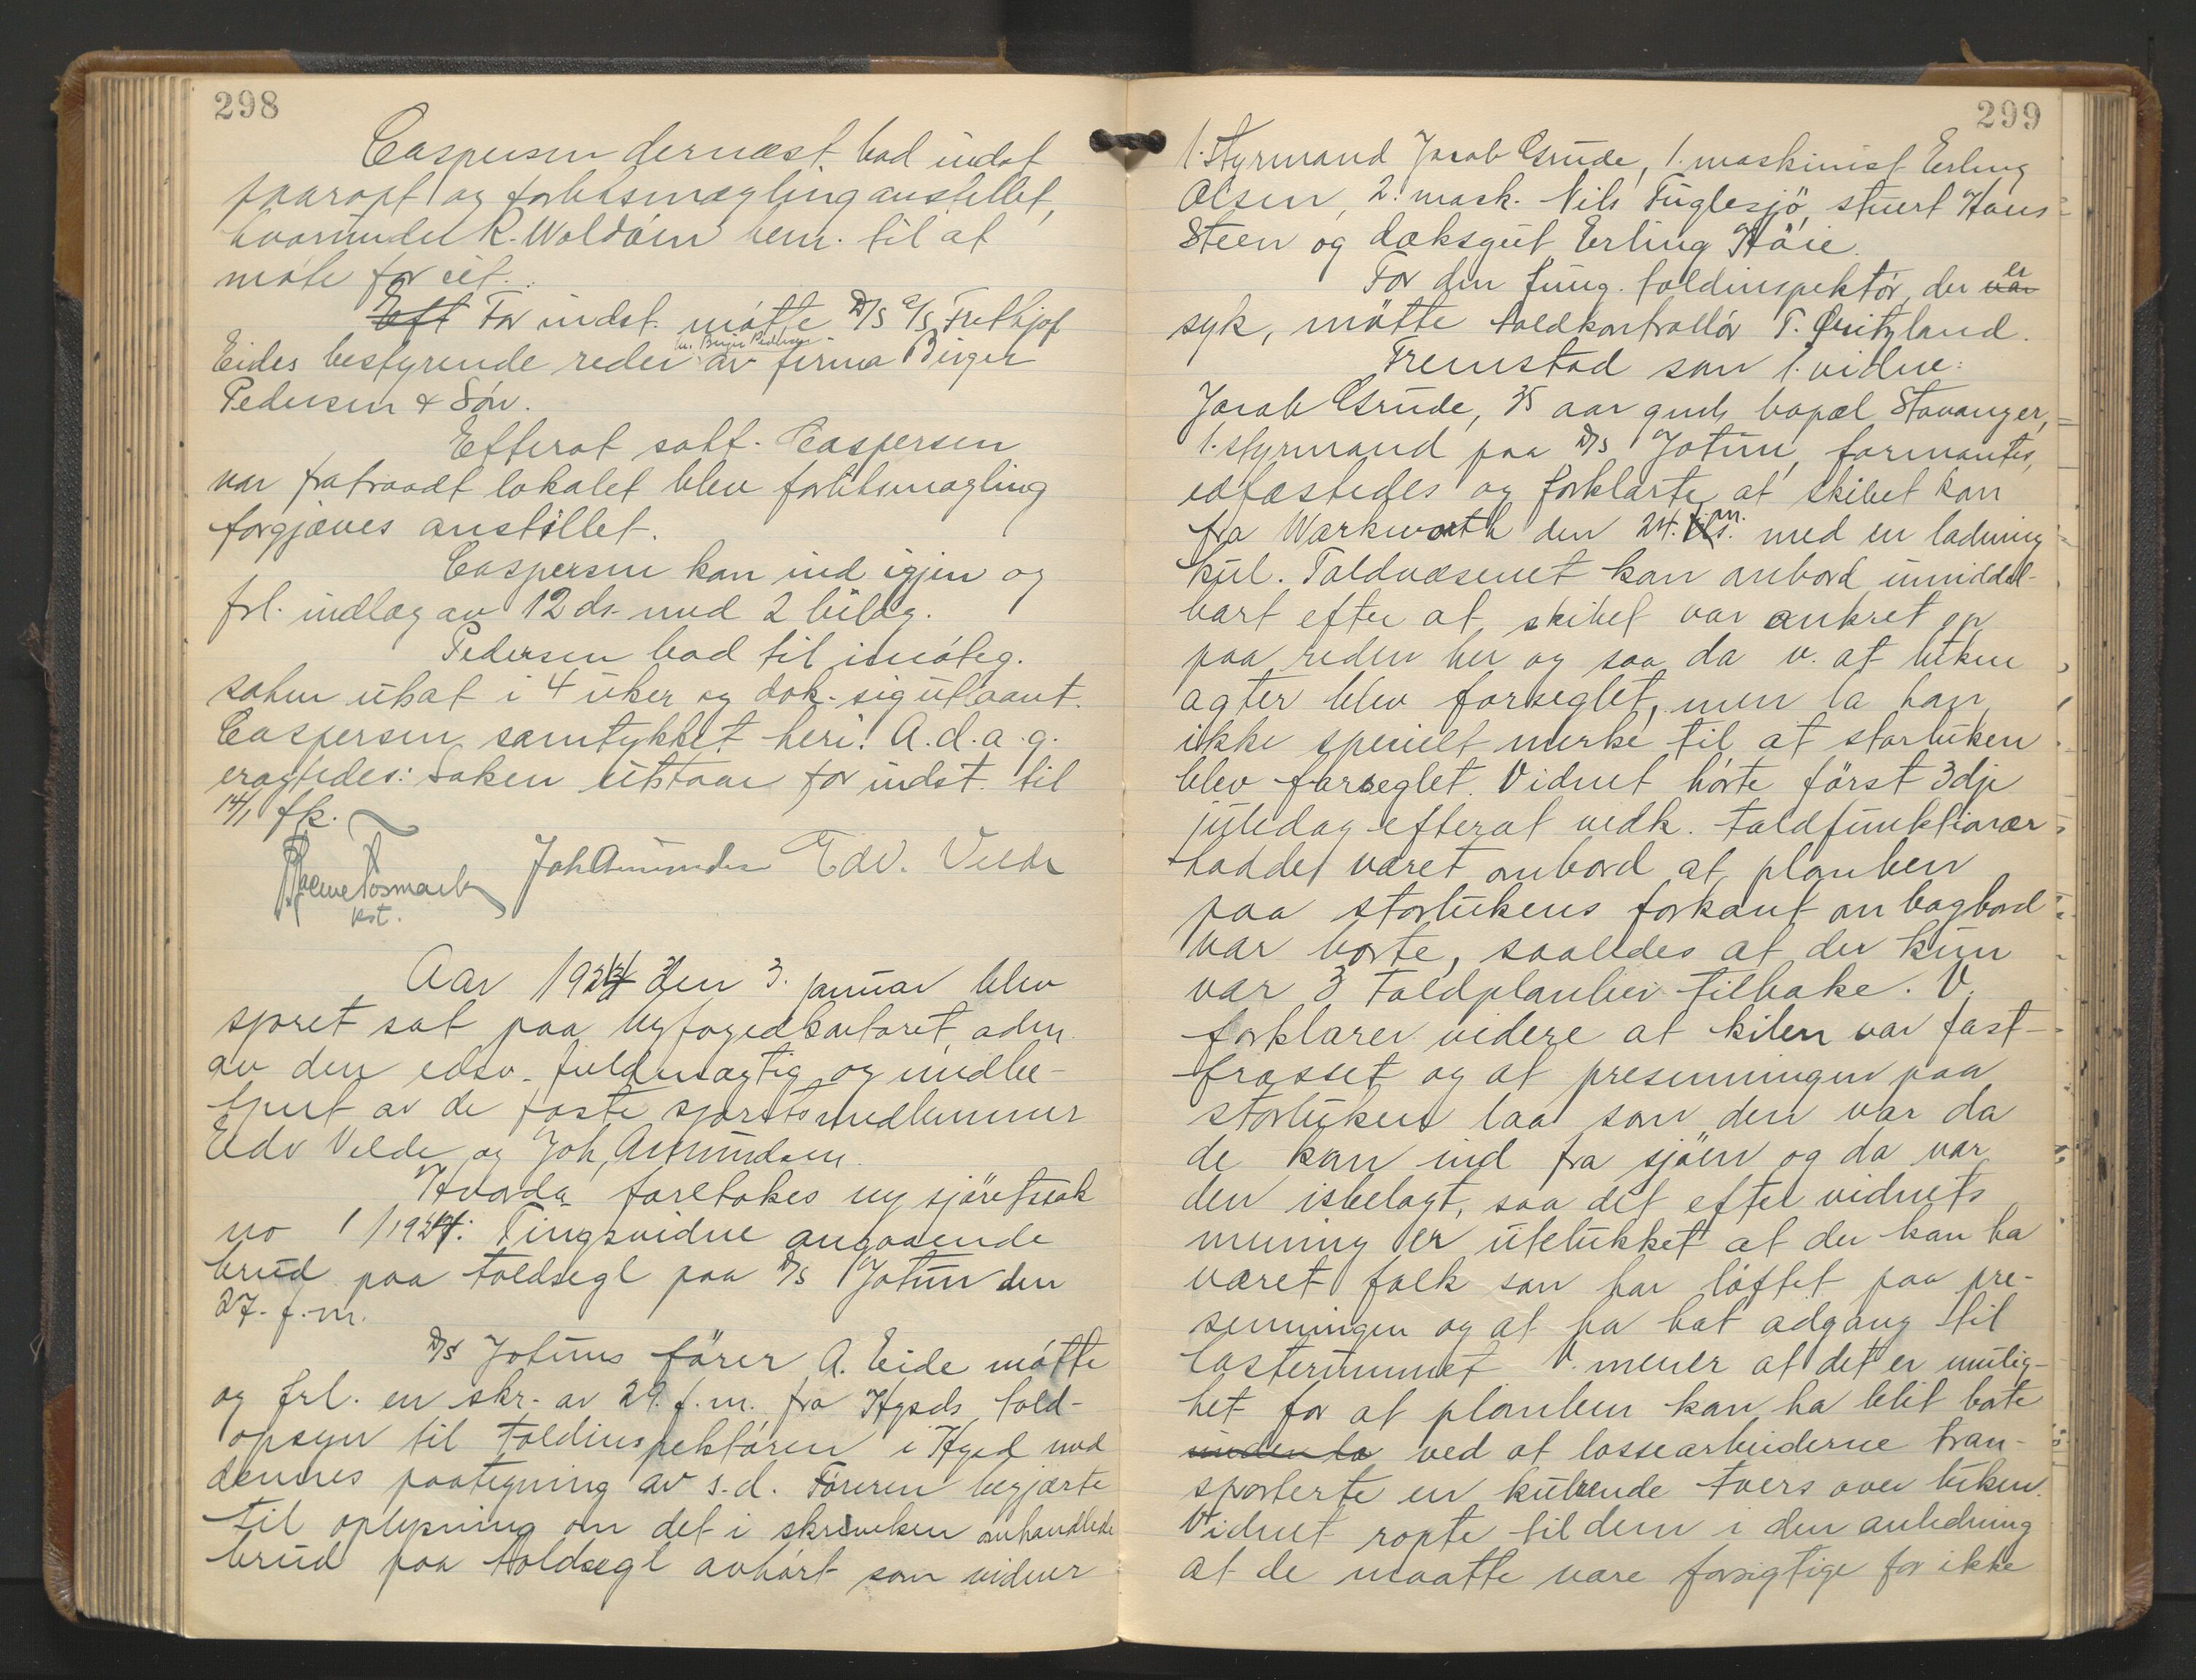 298
Caspersen dernæst bad indst.
paaropt og forliksmægling anstillet,
hvorunder K. Woldsen bem. til at
møte for cit.
Eft For indst. møtte D/S A/S Frithjof
Eides bestyrende reder av firma Birger
v. Birger Pedersen
Pedersen & Søn.
Efterat sakf. Caspersen
var fratraadt lokalet blev forliksmægling
forgjæves anstillet.
Caspersen kom ind igjen og
frl. indlæg av 12 ds. med 2 bilag.
Pedersen bad til imøteg.
saken utsat i 4 uker og dok. sig utlaant.
Caspersen samtykket heri. A.d.a.g.
eragtedes: Saken utstaar for indst. til
14/1 fk.
kst.
Joh Amundsen Edv. Velde
Aar 1924 den 3. januar blev
sjøret sat paa byfogedkontoret, adm.
av den edsv. fuldmægtig og medbe-
tjent av de faste sjøretsmedlemmer
Edv Velde og Joh, Amundsen.
Hvorda foretokes ny sjøretssak
no 1/1924: Tingsvidne angaaende
brud paa toldsegl paa D/S Jotun den
27. f.m.
D/S Jotuns fører A. Eide møtte
og frl. en skr. av 29. f.m. fra Hgsds told-
opsyn til toldinspektøren i Hgsd med
dennes paategning av s.d. Føreren begjærte
til oplysning om det i skrivelsen omhandlede
brud paa toldsegl avhørt som vidner
299
1. styrmand Jacob Grude, 1. maskinist Erling
Olsen, 2. mask. Nils Fuglesjø, stuert Hans
Steen og dæksgut Erling Høie.
For den fung. toldinspektør, der var er
syk, møtte toldkontrollør T. Qvitzland.
Fremstod som 1. vidne:
Jacob Grude, 35 aar gml, bopæl Stavanger,
1. styrmand paa D/S Jotun, formantes,
edfæstedes og forklarte at skibet kom
fra Warkworth den 24. f.m. med en ladning
kul. Toldvæsenet kom ombord umiddel-
bart efter at skibet var ankret op
paa reden her og saa da v. at luken
agter blev forseglet, men la han
ikke specielt merke til at storluken
blev forseglet. Vidnet hørte først 3dje
juledag efterat vedk. toldfunktionær
hadde været ombord at planken
paa storlukens forkant om bagbord
var borte, saaledes at der kun
var 3 toldplanker tilbake. V.
forklarer videre at kilen var fast-
frosset og at presenningen paa
storluken laa som den var da
de kom ind fra sjøen og da var
den isbelagt, saa det efter vidnets
mening er utelukket at der kan ha
været folk som har løftet paa pre-
senningen og at ha hat adgang til
lasterummet. V. mener at det er mulig-
het for at planken kan ha blit borte
ved at lossearbeiderne tran-
sporterte en kulrende tvers over luken.
Vidnet ropte til dem i den anledning
at de maatte være forsigtige for ikke